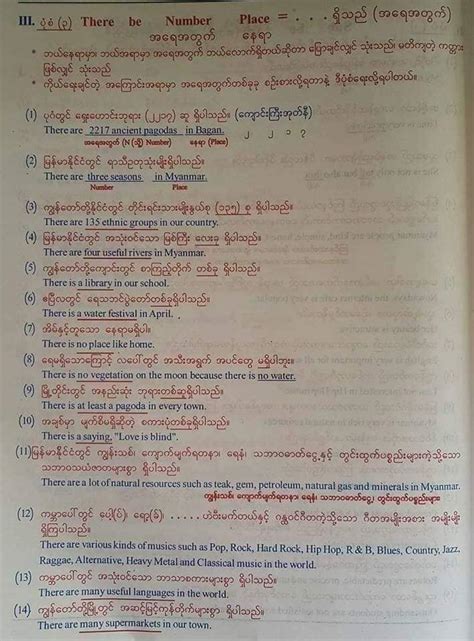 III. ပုံစံ (၃) There be Number Place = . . . . ရှိသည် (အရေအတွက်)
အရေအတွက် နေရာ
* ဘယ်နေရာမှာ၊ ဘယ်အရာမှာ အရေအတွက် ဘယ်လောက်ရှိတယ်ဆိုတာ ပြောချင်လျှင် သုံးသည်၊ မတိကျတဲ့ ကတ္တား
ဖြစ်လျှင် သုံးသည်
* ကိုယ်ရေးချင်တဲ့ အကြောင်းအရာမှာ အရေအတွက်တစ်ခုခု စဉ်းစားလို့ရတာနဲ့ ဒီပုံစံရေးလို့ရပါတယ်။
(1) ပုဂံတွင် ရှေးဟောင်းဘုရား (၂၂၁၇) ဆူ ရှိပါသည်။ (ကျောင်းကြီးအုတ်နီ)
There are 2217 ancient pagodas in Bagan. ၂ ၂ ၁ ၇
အရေအတွက် (N ဤသို့) Number နေရာ (Place)
(2) မြန်မာနိုင်ငံတွင် ရာသီဥတုသုံးမျိုးရှိပါသည်။
There are three seasons in Myanmar.
Number Place
(3) ကျွန်တော်တို့နိုင်ငံတွင် တိုင်းရင်းသားမျိုးနွယ်စု (၁၃၅) စု ရှိပါသည်။
There are 135 ethnic groups in our country.
(4) မြန်မာနိုင်ငံတွင် အသုံးဝင်သော မြစ်ကြီး လေးခု ရှိပါသည်။
There are four useful rivers in Myanmar.
(5) ကျွန်တော်တို့ကျောင်းတွင် စာကြည့်တိုက် တစ်ခု ရှိပါသည်။
There is a library in our school.
(6) ဧပြီလတွင် ရေသဘင်ပွဲတော်တစ်ခုရှိပါသည်။
There is a water festival in April.
(7) အိမ်နှင့်တူသော နေရာမရှိပါ။
There is no place like home.
(8) ရေမရှိသောကြောင့် လပေါ်တွင် အသီးအရွက် အပင်တွေ မရှိပါဘူး။
There is no vegetation on the moon because there is no water.
(9) မြို့တိုင်းတွင် အနည်းဆုံး ဘုရားတစ်ဆူရှိပါသည်။
There is at least a pagoda in every town.
(10) အချစ်မှာ မျက်စိမရှိဆိုတဲ့ စကားပုံတစ်ခုရှိပါသည်။
There is a saying, "Love is blind".
(11) မြန်မာနိုင်ငံတွင် ကျွန်းသစ်၊ ကျောက်မျက်ရတနာ၊ ရေနံ၊ သဘာဝဓာတ်ငွေ့နှင့် တွင်းထွက်ပစ္စည်းများကဲ့သို့သော
သဘာဝသယံဇာတများစွာ ရှိပါသည်။
There are a lot of natural resources such as teak, gem, petroleum, natural gas and minerals in Myanmar.
ကျွန်းသစ်၊ ကျောက်မျက်ရတနာ၊ ရေနံ၊ သဘာဝဓာတ်ငွေ့၊ တွင်းထွက်ပစ္စည်းများ
(12) ကမ္ဘာပေါ်တွင် ပေ့ါ(ပ်)၊ ရော့(ခ်)၊ . . . . . ဟဲဗီးမက်တယ်နှင့် ဂန္ထဝင်ဂီတကဲ့သို့သော ဂီတအမျိုးအစား အမျိုးမျိုး
ရှိကြပါသည်။
There are various kinds of musics such as Pop, Rock, Hard Rock, Hip Hop, R & B, Blues, Country, Jazz,
Raggae, Alternative, Heavy Metal and Classical music in the world.
(13) ကမ္ဘာပေါ်တွင် အသုံးဝင်သော ဘာသာစကားများစွာ ရှိပါသည်။
There are many useful languages in the world.
(14) ကျွန်တော်တို့မြို့တွင် အဆင့်မြင့်ကုန်တိုက်များစွာ ရှိပါသည်။
There are many supermarkets in our town.